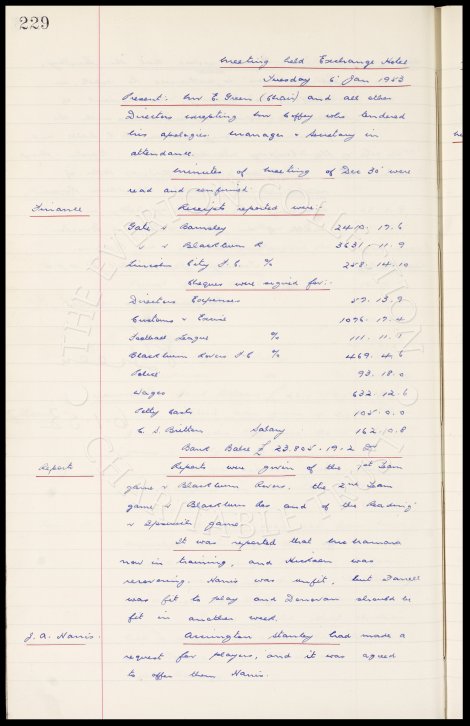 229
Meeting held Exchange Hotel
Tuesday 6 Jan 1953
Present: Mr E. Green (Chair) and all other
Directors excepting Mr Coffey who tendered
his apologies. Manager & Secretary in
attendance.
Minutes of meeting of Dec 30 were
read and confirmed.
Finance Receipts reported were:-
Gate v Barnsley 2410. 17. 6
" v Blackburn R 3631. 11. 9
Lincoln City F.C. % 258. 14. 10
Cheques were signed for:-
Directors Expenses 57. 13. 9
Customs & Excise 1076. 17. 4
Football League % 111. 11.
Blackburn Rovers F C % 469. 4. 6
Police 93. 18. 0
Wages 632. 12. 6
Petty Cash 105. 0. 0
C. S. Britton Salary 162. 0. 8
Bank Balce £ 23.805. 19. 2 Dr
Reports Reports were given of the 1st Team
game v Blackburn Rovers. the 2nd Team
game v Blackburn Res and of the Reading
v Ipswich game.
It was reported that was
now in training, and Hickson was
recovering. Harris was unfit, but Farrell
was fit to play and Donovan should be
fit in another week.
J. A. Harris. Accrington Stanley had made a
request for players, and it was agreed
to offer them Harris.
THE EVERTON COLLECTION CHARITABLE TRUST